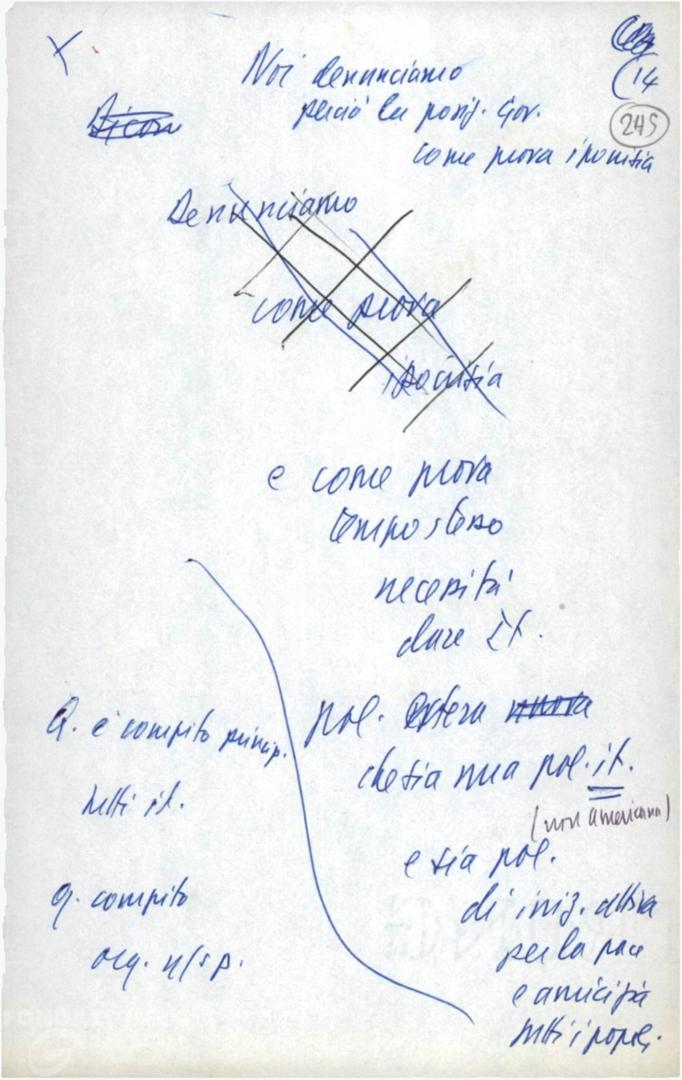 (14
245
Noi denunciamo
perciò la posiz. Gov.
come prova ipocrisia
Dicono
Denunciamo
come prova
ipocrisia
e come prova
tempo stesso
necessità
dare It.
pol. estera nuova
che sia una pol. it.
(non americana)
e sia pol.
di iniz. attiva
per la pace
e amicizia
tutti i popoli.
Q. è compito princip.
tutti it.
q. compito
org. n/sp.
FONDAZ